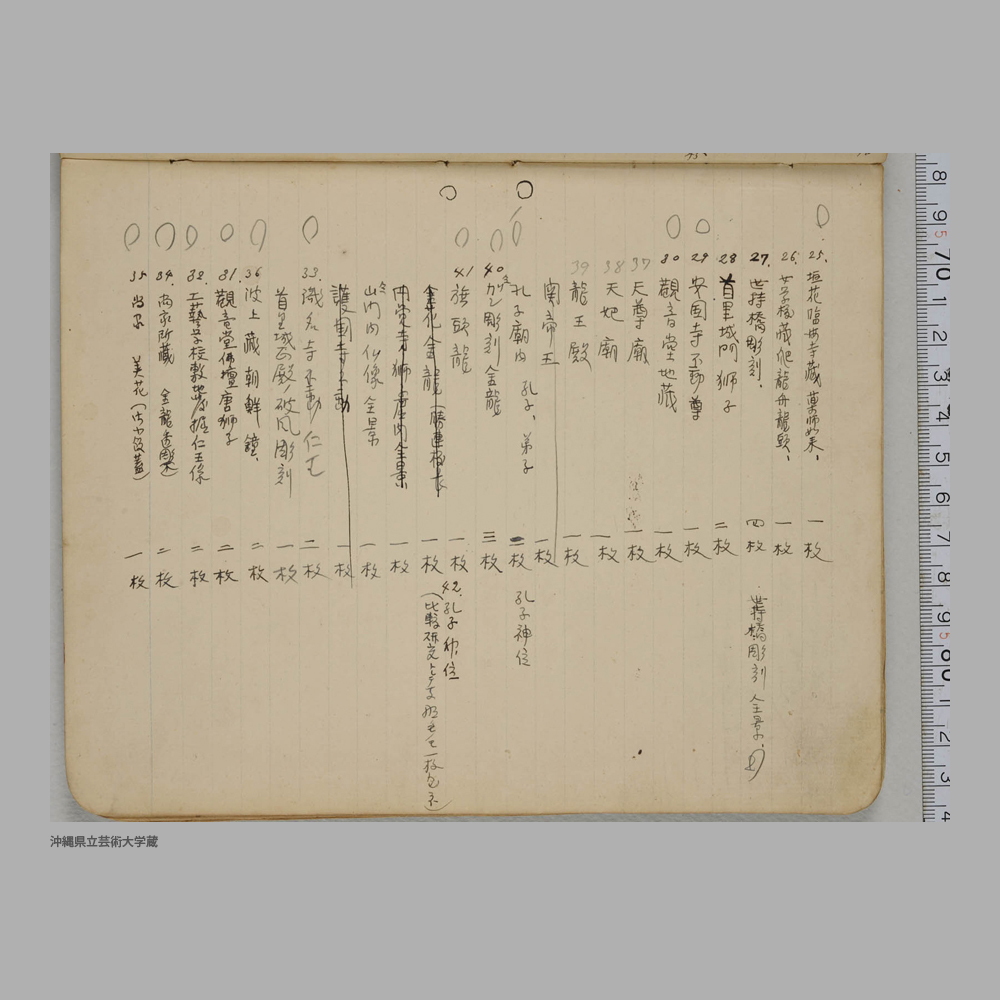 25. 垣花臨海寺藏 藥師如来. 一枚
26. 女学校藏爬龍舟龍頭. 一枚
27. 世持橋彫刻. 四枚 世持橋彫刻 全景.
28 首里城門 獅子 二枚
29 安国寺不動尊 一枚
30 觀音堂地藏 一枚
37 天尊廟 一枚
38 天妃廟 一枚
39 龍王殿 一枚
関帝王 一枚
孔子廟内 孔子、弟子 枚 孔子神位
40 ガン彫刻 金龍 三枚
41 旗頭 龍 一枚
42. 孔子神位
金花金龍 一枚
円覚寺獅子座内全景 一枚
山内内仏像 全景 一枚
護国寺不動 一枚
33. 識名寺不動 仁王 二枚
首里城正殿ノ破風彫刻 一枚
36 波上藏 朝鮮鐘. 二枚
31. 觀音堂佛壇唐獅子 二枚
32. 工藝学校敷地發掘仁王像 二枚
34. 尚家所藏 金龍透彫 二枚
35 尚家 美花 一枚
8 9 70 1 2 3 4 5 6 7 8 9 80 1 2 3 4
沖縄県立芸術大学蔵